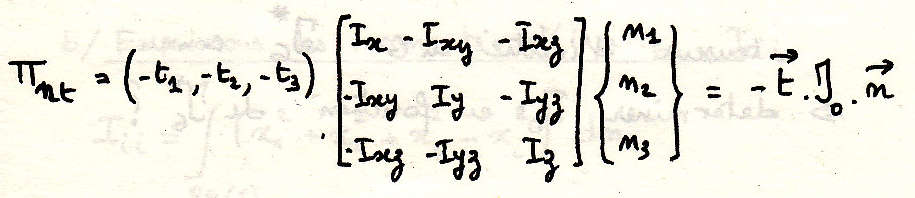 Π_nt = (-t₁, -t₂, -t₃) [ Ix -Ixy -Ixz ; -Ixy Iy -Iyz ; -Ixz -Iyz Iz ] { n₁ ; n₂ ; n₃ } = -t⃗ . J₀ . n⃗